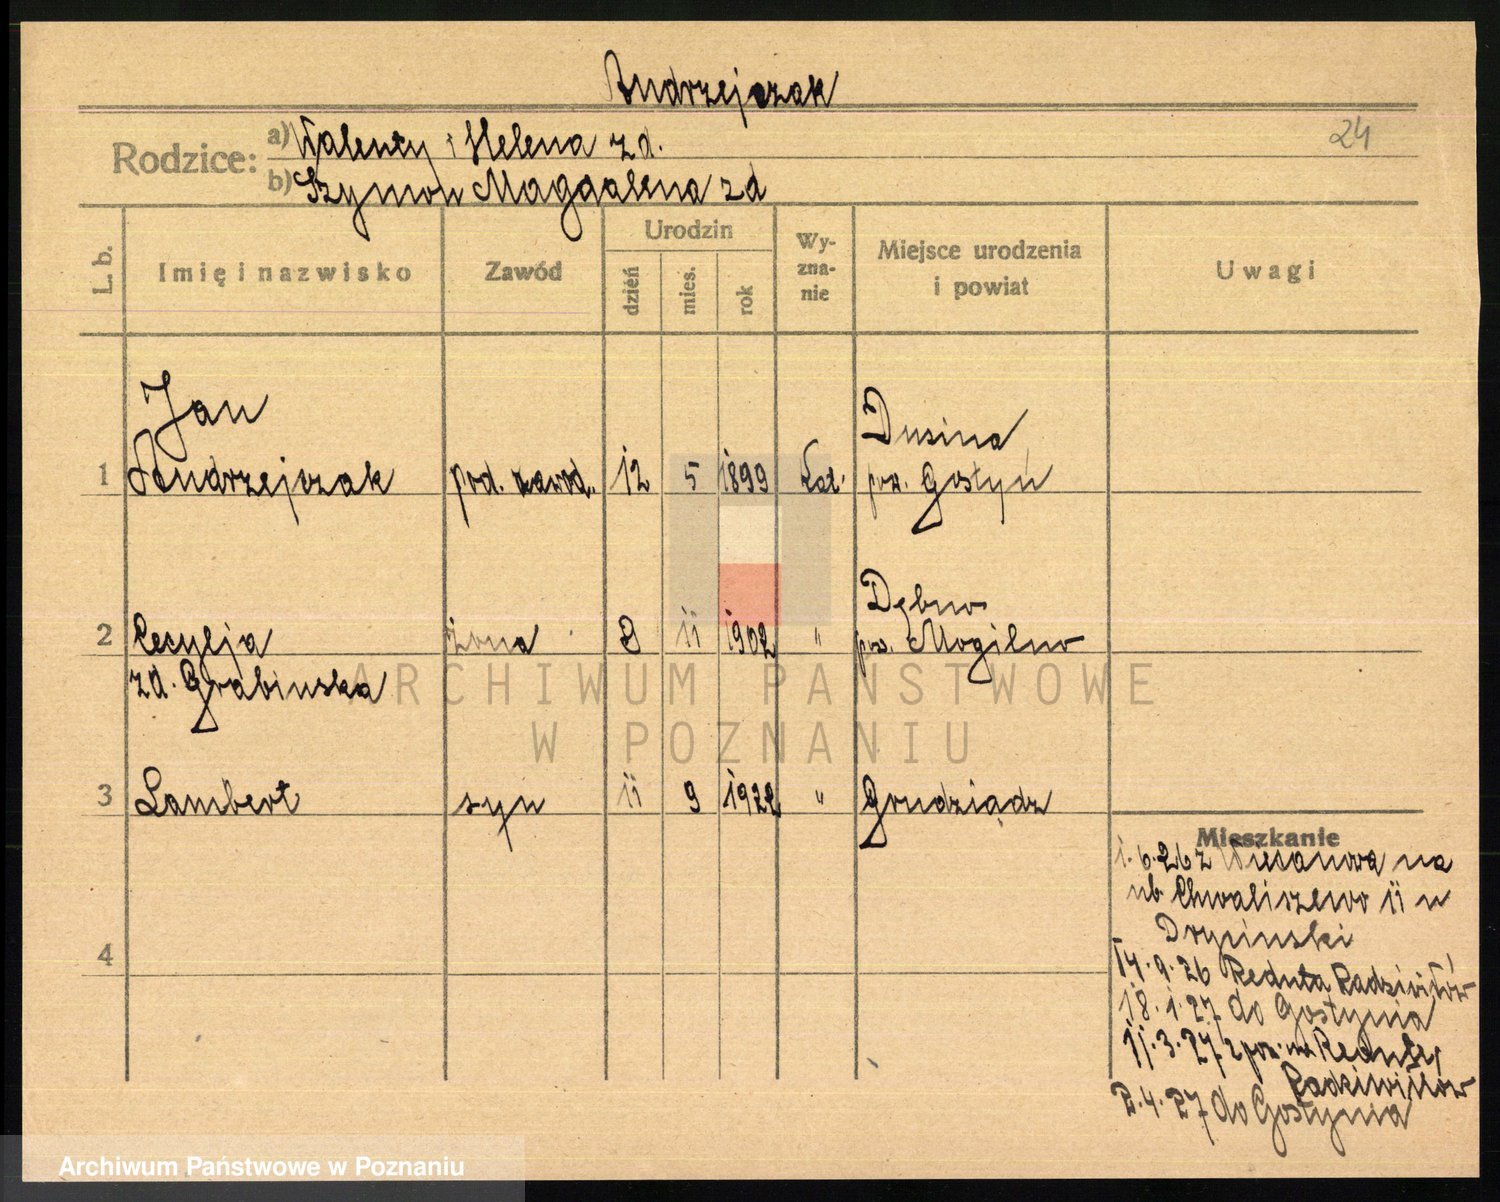 Andrzejczak
24
Rodzice: a) Walenty i Helena zd.
b) Szymon Magdalena zd
L. b.
Imię i nazwisko
Zawód
Urodzin
dzień
mies.
rok
Wy-
zna-
nie
Miejsce urodzenia
i powiat
Uwagi
Jan
Dusina
1 Andrzejczak pod. zawod. 12 5 1899 kat. pow. Gostyń
Dębno
2 Cecylja żona 8 11 1902 " pow. Mogilno
zd. Grabinska
ARCHIWUM PAŃSTWOWE
W POZNANIU
3 Lambert syn 11 9 1922 " Grudziądz
Mieszkanie
1.6.26 z na
ub Chwaliszewo 11 u
4
14.9.26 Reduta Radziwiłłów
18.1.27 do Gostynia
11.3.27 z poz. na Redutę
Radziwiłłów
2.4.27 do Gostynia
Archiwum Państwowe w Poznaniu